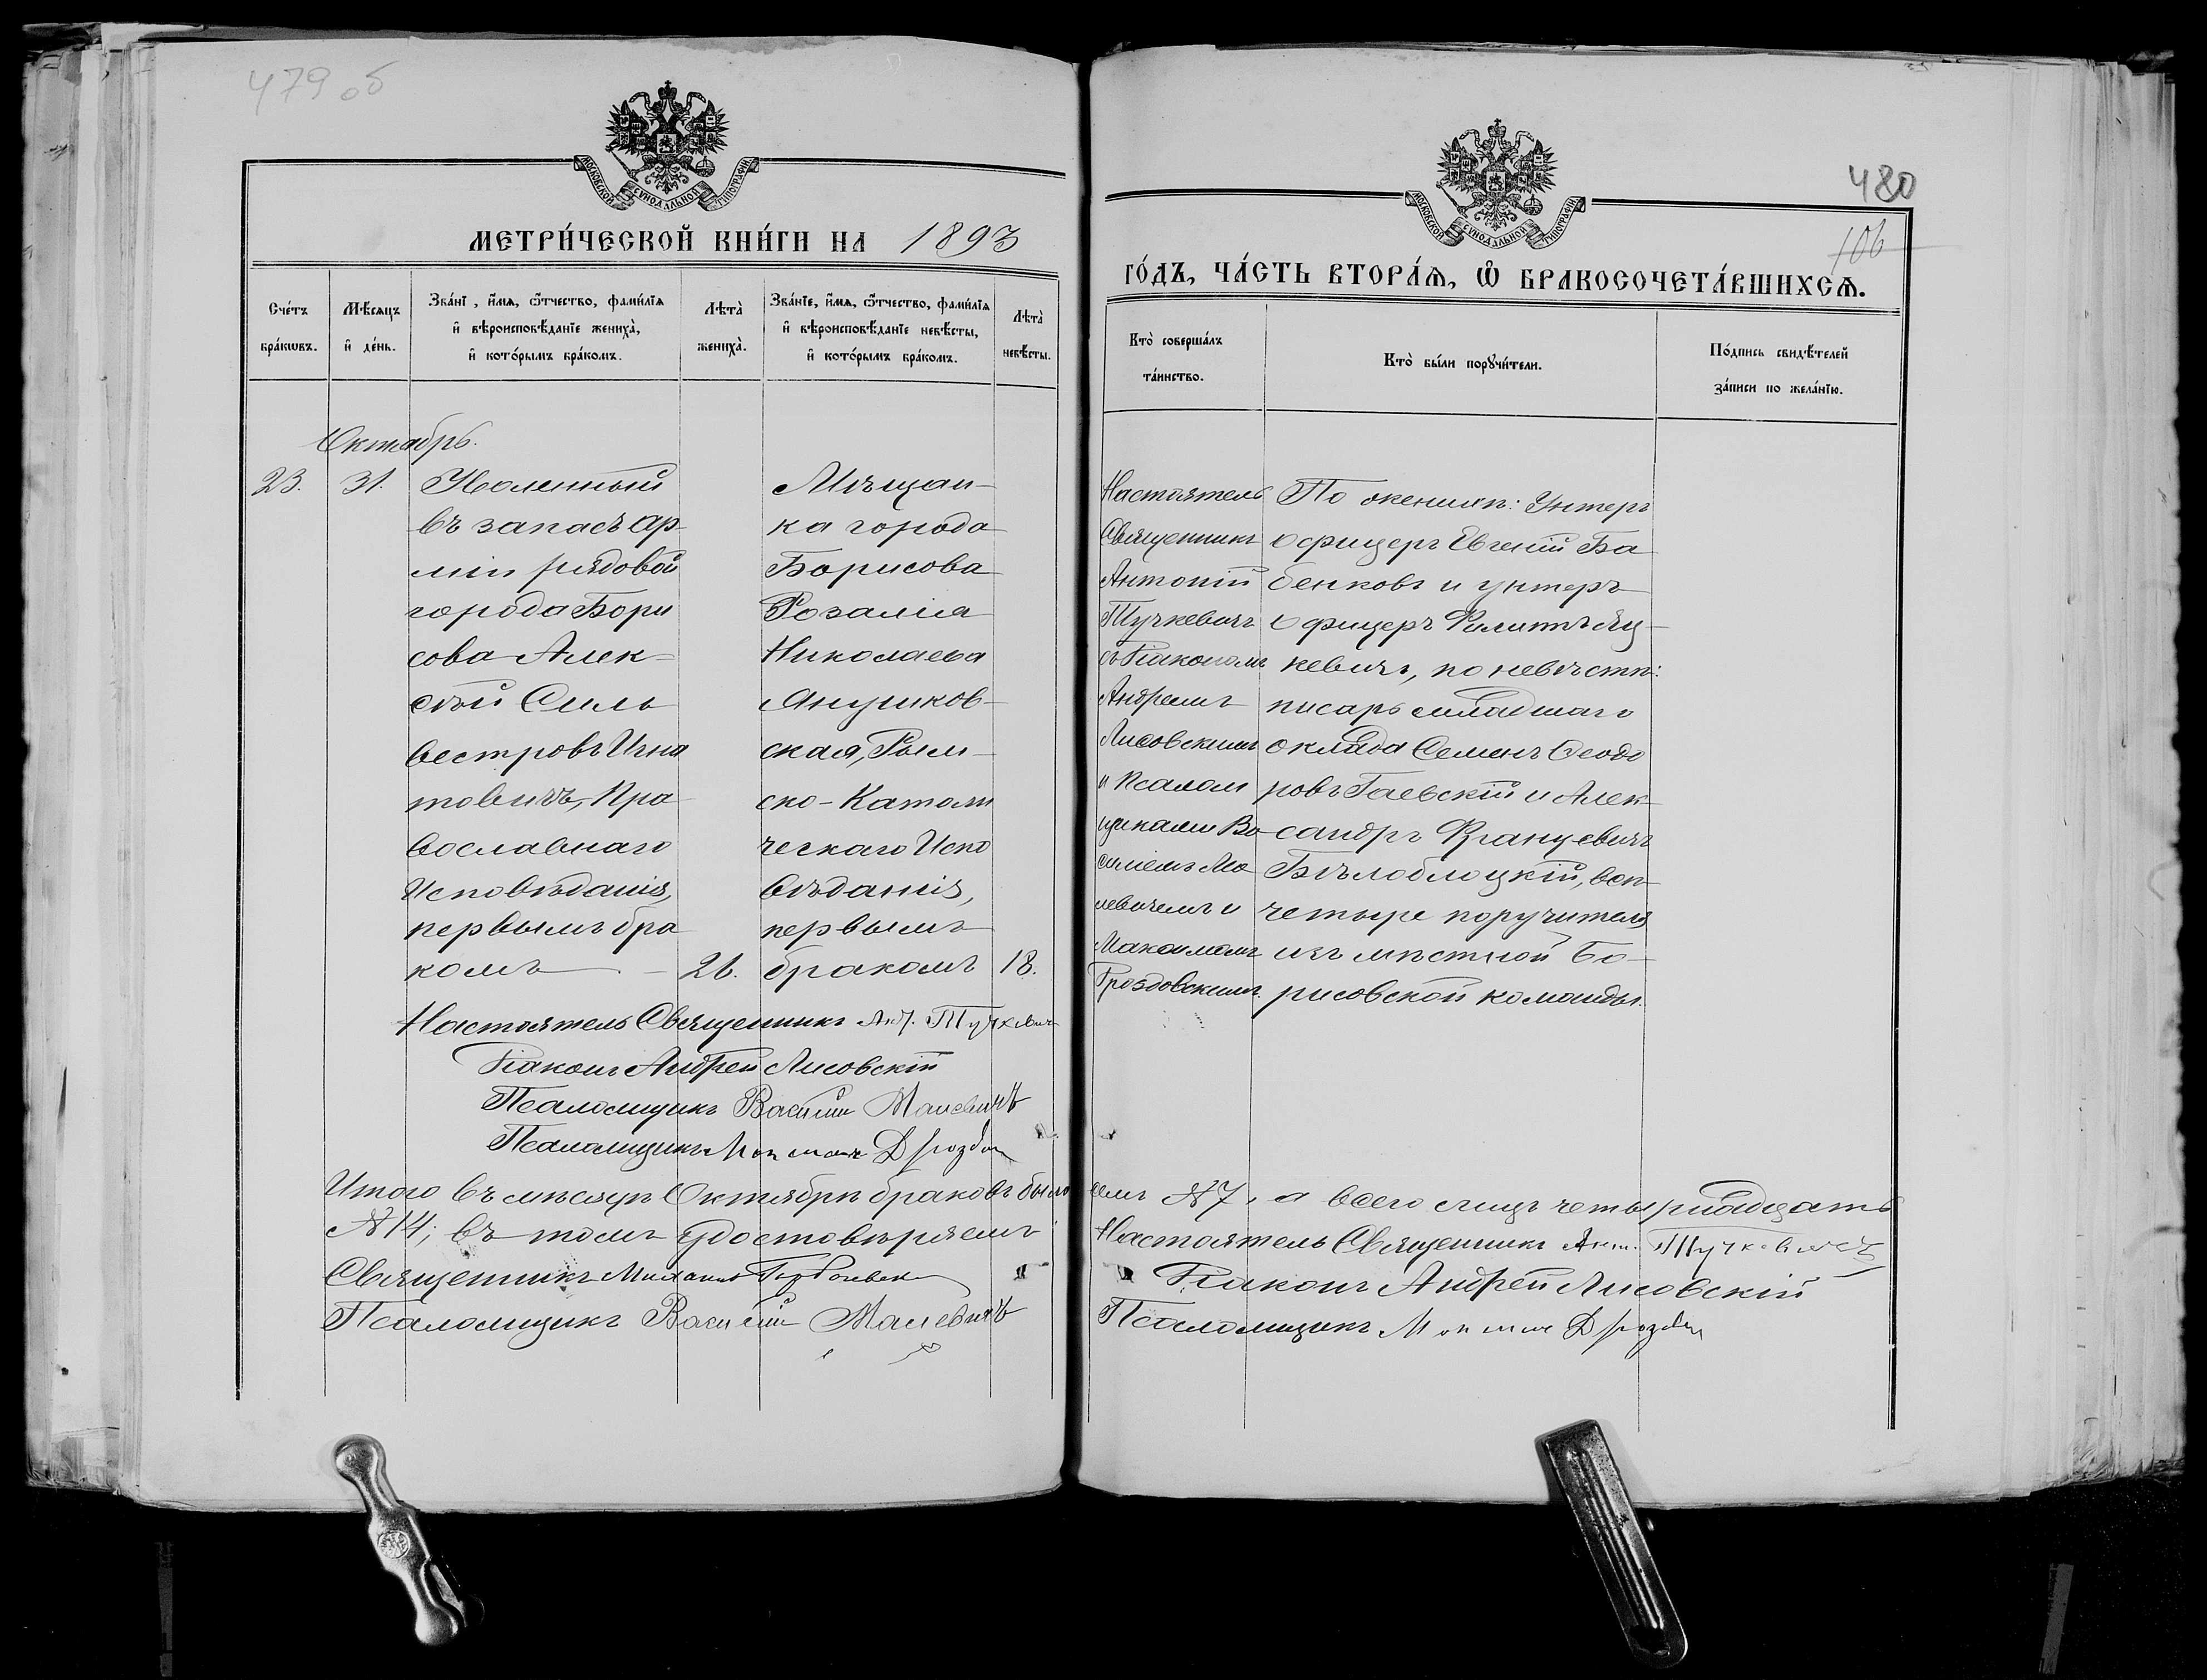 479 об
МОСКОВСКОЙ СѴНОДАЛЬНОЙ ТИПОГРАФІИ
МЕТРИ́ЧЕСКОЙ КНИ́ГИ НА 1893
Сче́тъ бра́кѡвъ.
Мѣ́сяцъ и҆ де́нь.
Зва́нї , и҆́мѧ, ѻ҆́тчество, фами́лїѧ
и҆ вѣроисповѣ́данїе жениха̀,
и҆ кото́рымъ бра́комъ.
Лѣта̀ жениха̀.
Зва́нїе, и҆́мѧ, ѻ҆́тчество, фами́лїѧ
и҆ вѣроисповѣ́данїе невѣ́сты,
и҆ кото́рымъ бра́комъ.
Лѣта̀ невѣ́сты.
Октябрь.
23. 31.
Уволенный
въ запасъ ар
міи рядовой
города Бори
сова Алек-
сѣй Силь
вестровъ Игна
товичъ, Пра
вославнаго
Исповѣданія,
первымъ бра
комъ 26.
Мѣщан-
ка города
Борисова
Розалія
Николаева
Янушков-
ская, Рим-
ско-Католи
ческаго Испо
вѣданія,
первымъ
бракомъ 18.
Настоятель Священникъ Ант. Тучкевичъ
Діаконъ Андрей Лисовскій
Псаломщикъ Василій Мацевичъ
Псаломщикъ
Итого въ мѣсяцѣ Октябрѣ браковъ было
№ 14; въ томъ удостовѣряемъ
Священникъ Михаилъ
Псаломщикъ Василій Мацевичъ
480
106
МОСКОВСКОЙ СѴНОДАЛЬНОЙ ТИПОГРАФІИ
ГО́ДЪ, ЧА́СТЬ ВТОРА́Ѧ, Ѽ БРАКОСОЧЕТА́ВШИХСѦ.
Кто̀ соверша́лъ
та́инство.
Кто̀ бы́ли порꙋчи́тели.
По́дпись свидѣ́телей
за́писи по жела́нїю.
Настоятель
Священникъ
Антоній
Тучкевичъ
съ Діакономъ
Андреемъ
Лисовскимъ
и Псалом
щиками Ва
силіемъ Ма
цевичемъ и
Максимомъ
Дроздовскимъ.
По женихѣ: Унтеръ
офицеръ Евгеній Ба
бенковъ и унтеръ
офицеръ Филиппъ Яц-
кевичъ, по невѣстѣ:
писарь младшаго
оклада Семенъ Ѳеодо
ровъ Гаевскій и Алек-
сандръ
Бѣлоблоцкій, всѣ
четыре поручителя
изъ мѣстной Бо-
рисовской команды.
семь № 7, а всего лицъ четырнадцать
Настоятель Священникъ Ант. Тучкевичъ
Діаконъ Андрей Лисовскій
Псаломщикъ